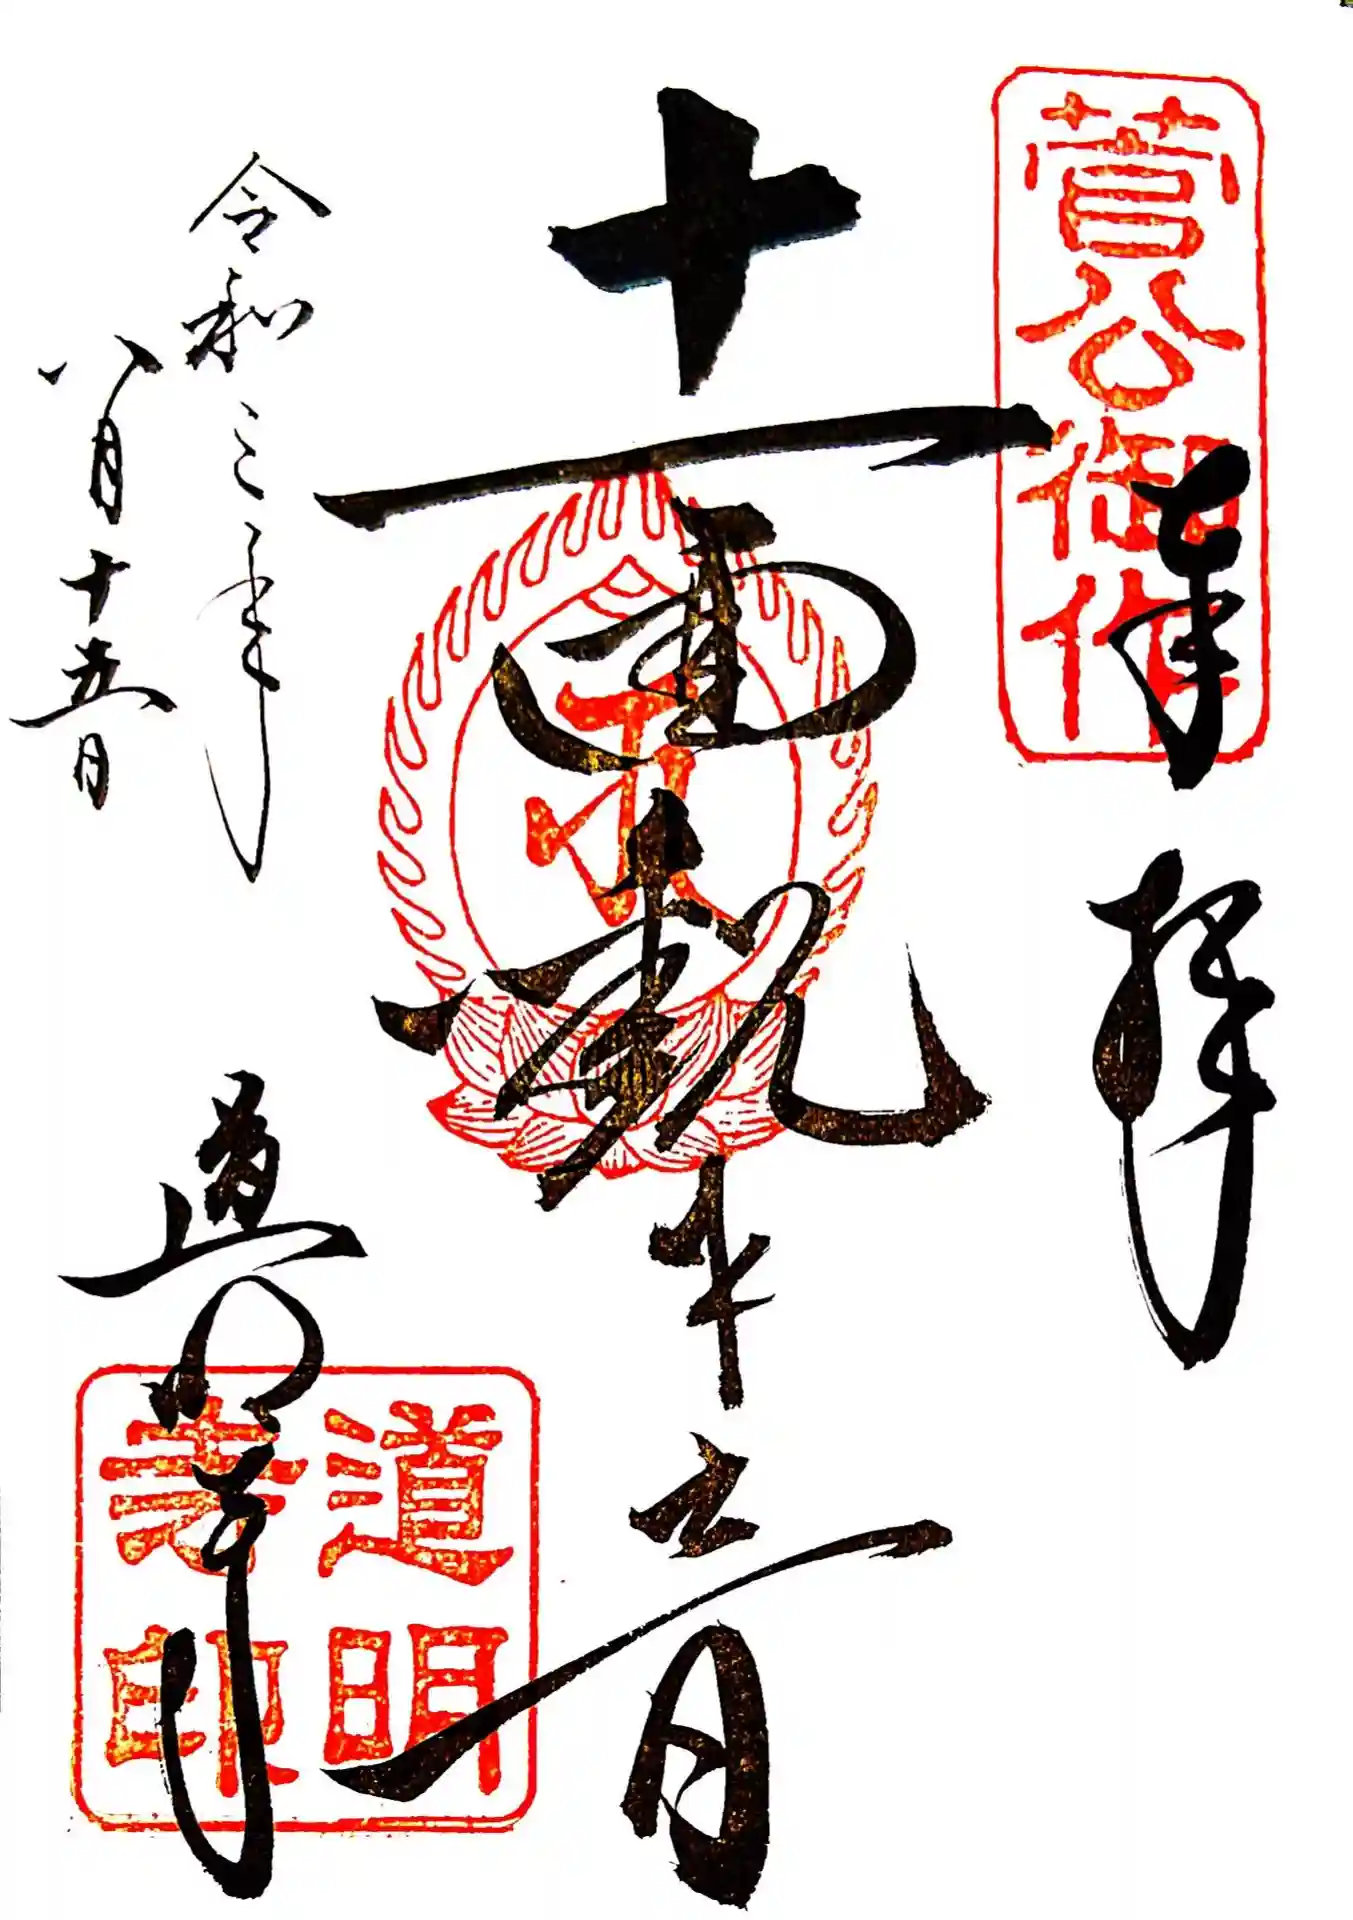 菅公御作
奉拝
十一面観世音
道明寺
道明寺印
令和三年
八月十五日